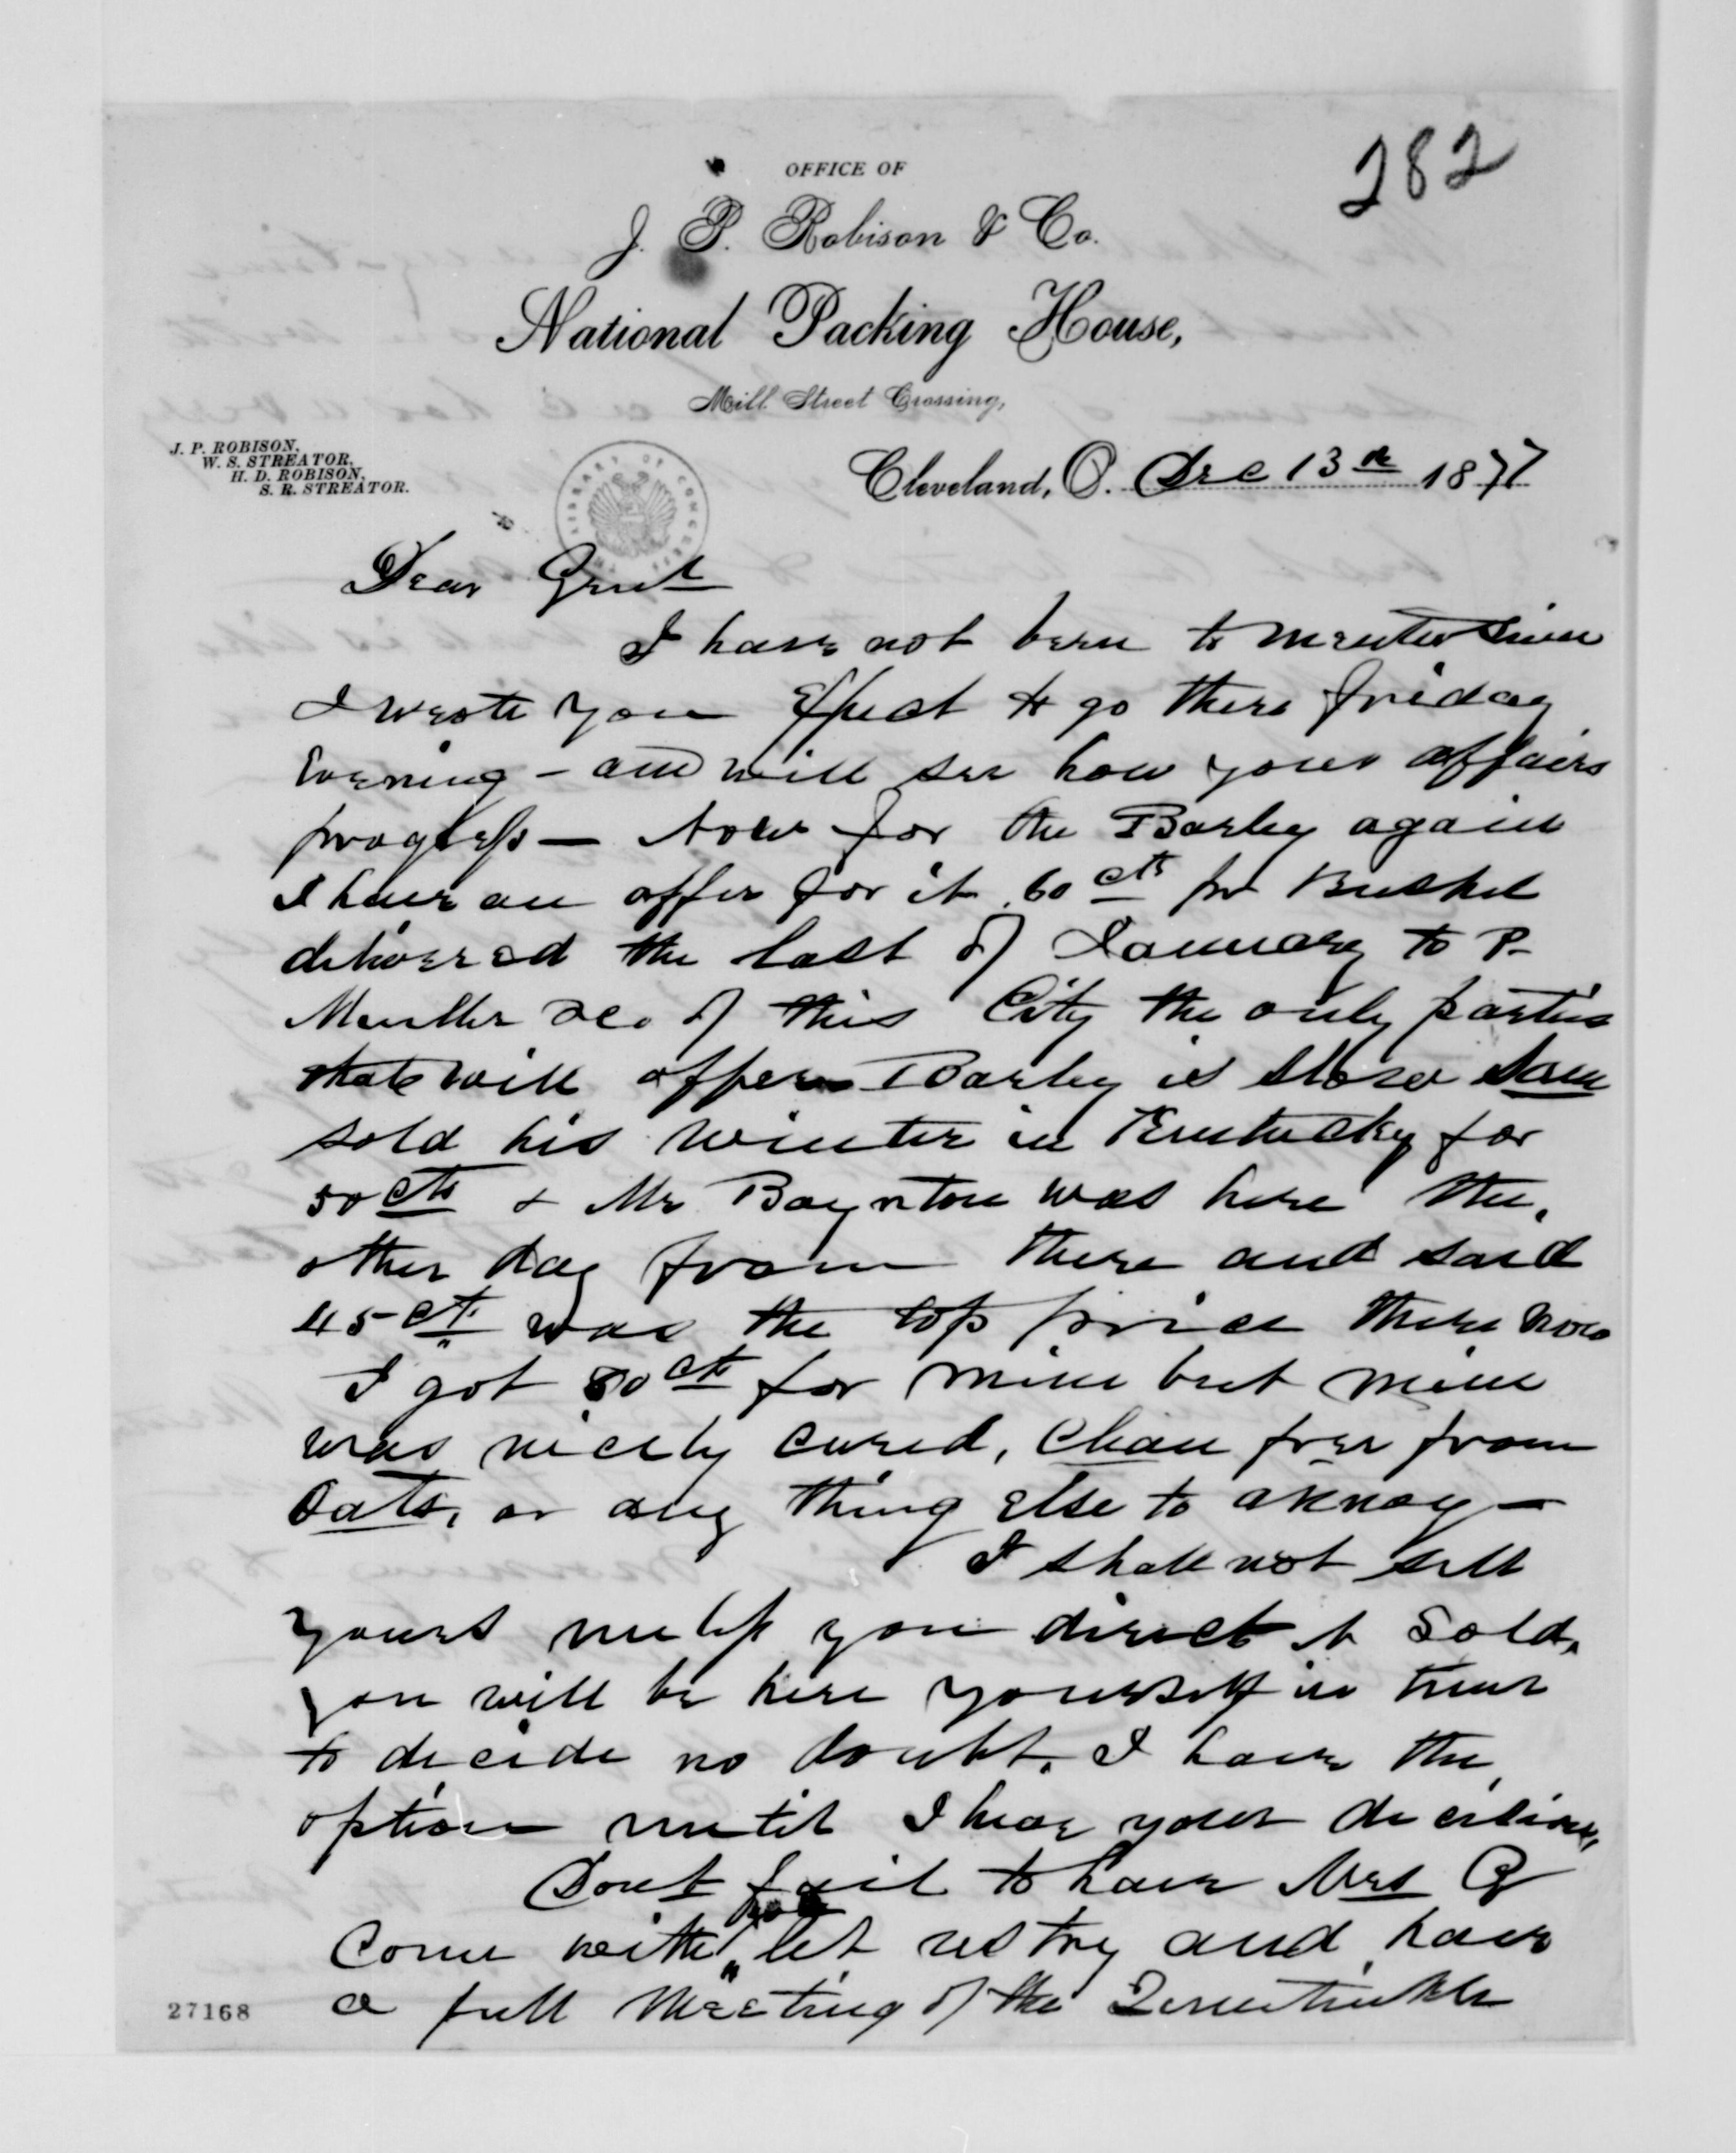 282
OFFICE OF
J. P. Robison & Co.
National Packing House,
Mill Street Crossing,
J. P. ROBISON,
W. S. STREATOR,
H. D. ROBISON,
S. R. STREATOR.
Cleveland, O. Dec 13th 1877
LIBRARY OF CONGRESS
Dear Genl
I have not been to Mentor Since
I wrote you Expect to go there friday
Evening – and will see how your affairs
progress — Now for the Barley again
I have an offer for it 60 cts pr Bushel
delivered the last of January to P.
Mueller &c. of this City the only parties
that will offer Barley is Slow Sam
sold his winter in Kentucky for
50 cts & Mr Baynton was here the
other day from there and said
45 ct was the top price there now
I got 80 cts for mine but mine
was nicely cured, Clean free from
Oats, or any thing Else to annoy —
I shall not sell
yours unless you direct it Sold,
you will be here yourself in time
to decide no doubt. I have the
option until I hear your decision,
Dont fail to have Mrs G
Come with you let us try and have
a full Meeting of the Quintinkle
27168